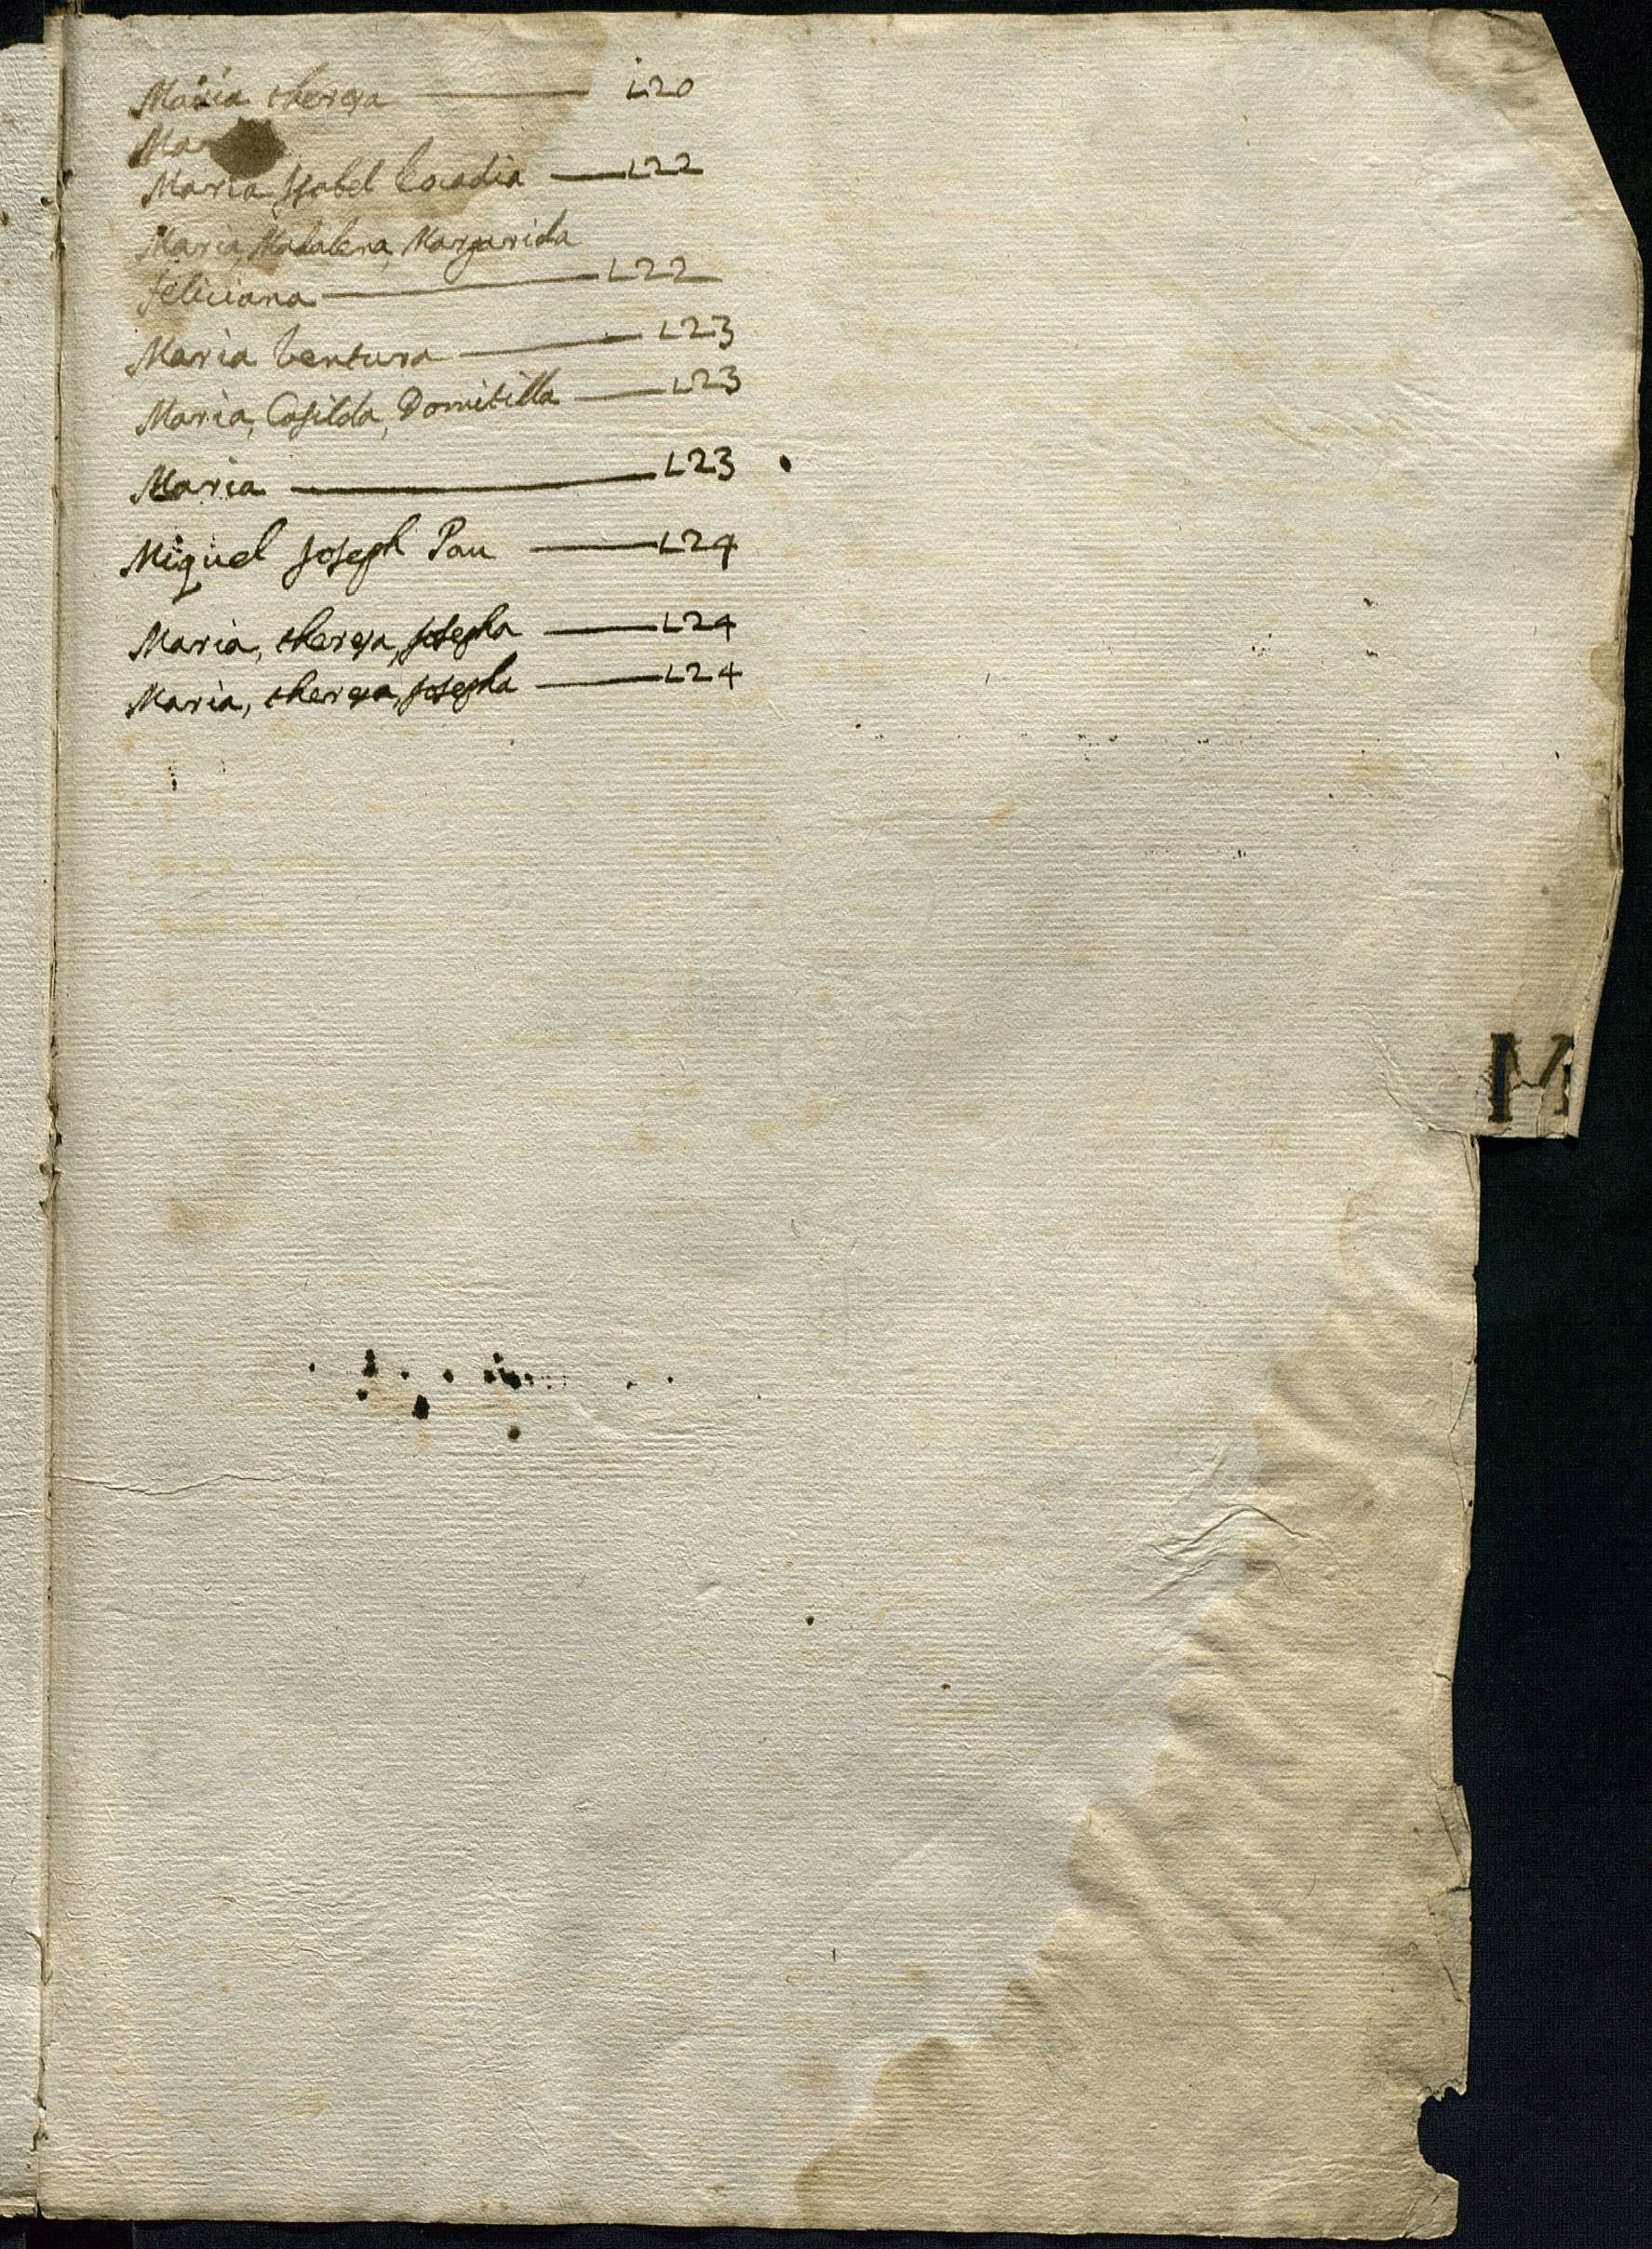 Maria theresa 120
Mar
Maria Isabel Locadia 122
Maria, Madalena, Margarida
feliciana 122
Maria Ventura 123
Maria, Casilda, Domitilla 123
Maria 123
Miquel Joseph Pau 124
Maria, theresa, Josepha 124
Maria, theresa, Josepha 124
M